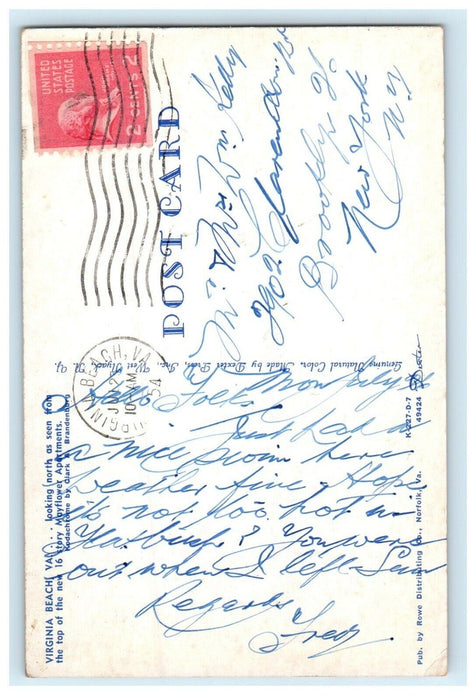 VIRGINIA BEACH, VA.... looking north as seen from
the top of the new 16 story Mayflower Apartments.
Kodachrome by Clark W. Brandenburg
Hello Folks Mon July 26
Just had a
nice swim here
weather fine – Hope
it's not too hot in
Flatbush? You were
out when I left – Seen
Regards
Fred
Genuine Natural Color, Made by Dexter Press, Inc., West Nyack, N. Y.
POST CARD
UNITED
STATES
POSTAGE
2 CENTS 2
VIRGINIA BEACH, VA.
10 AM
54
Mr & Mrs Wm Kelly
2902 Clarendon Rd
Brooklyn
New York
N.Y.
Dexter
K-227-D-7
49424
Pub. by Rowe Distributing Co., Norfolk, Va.